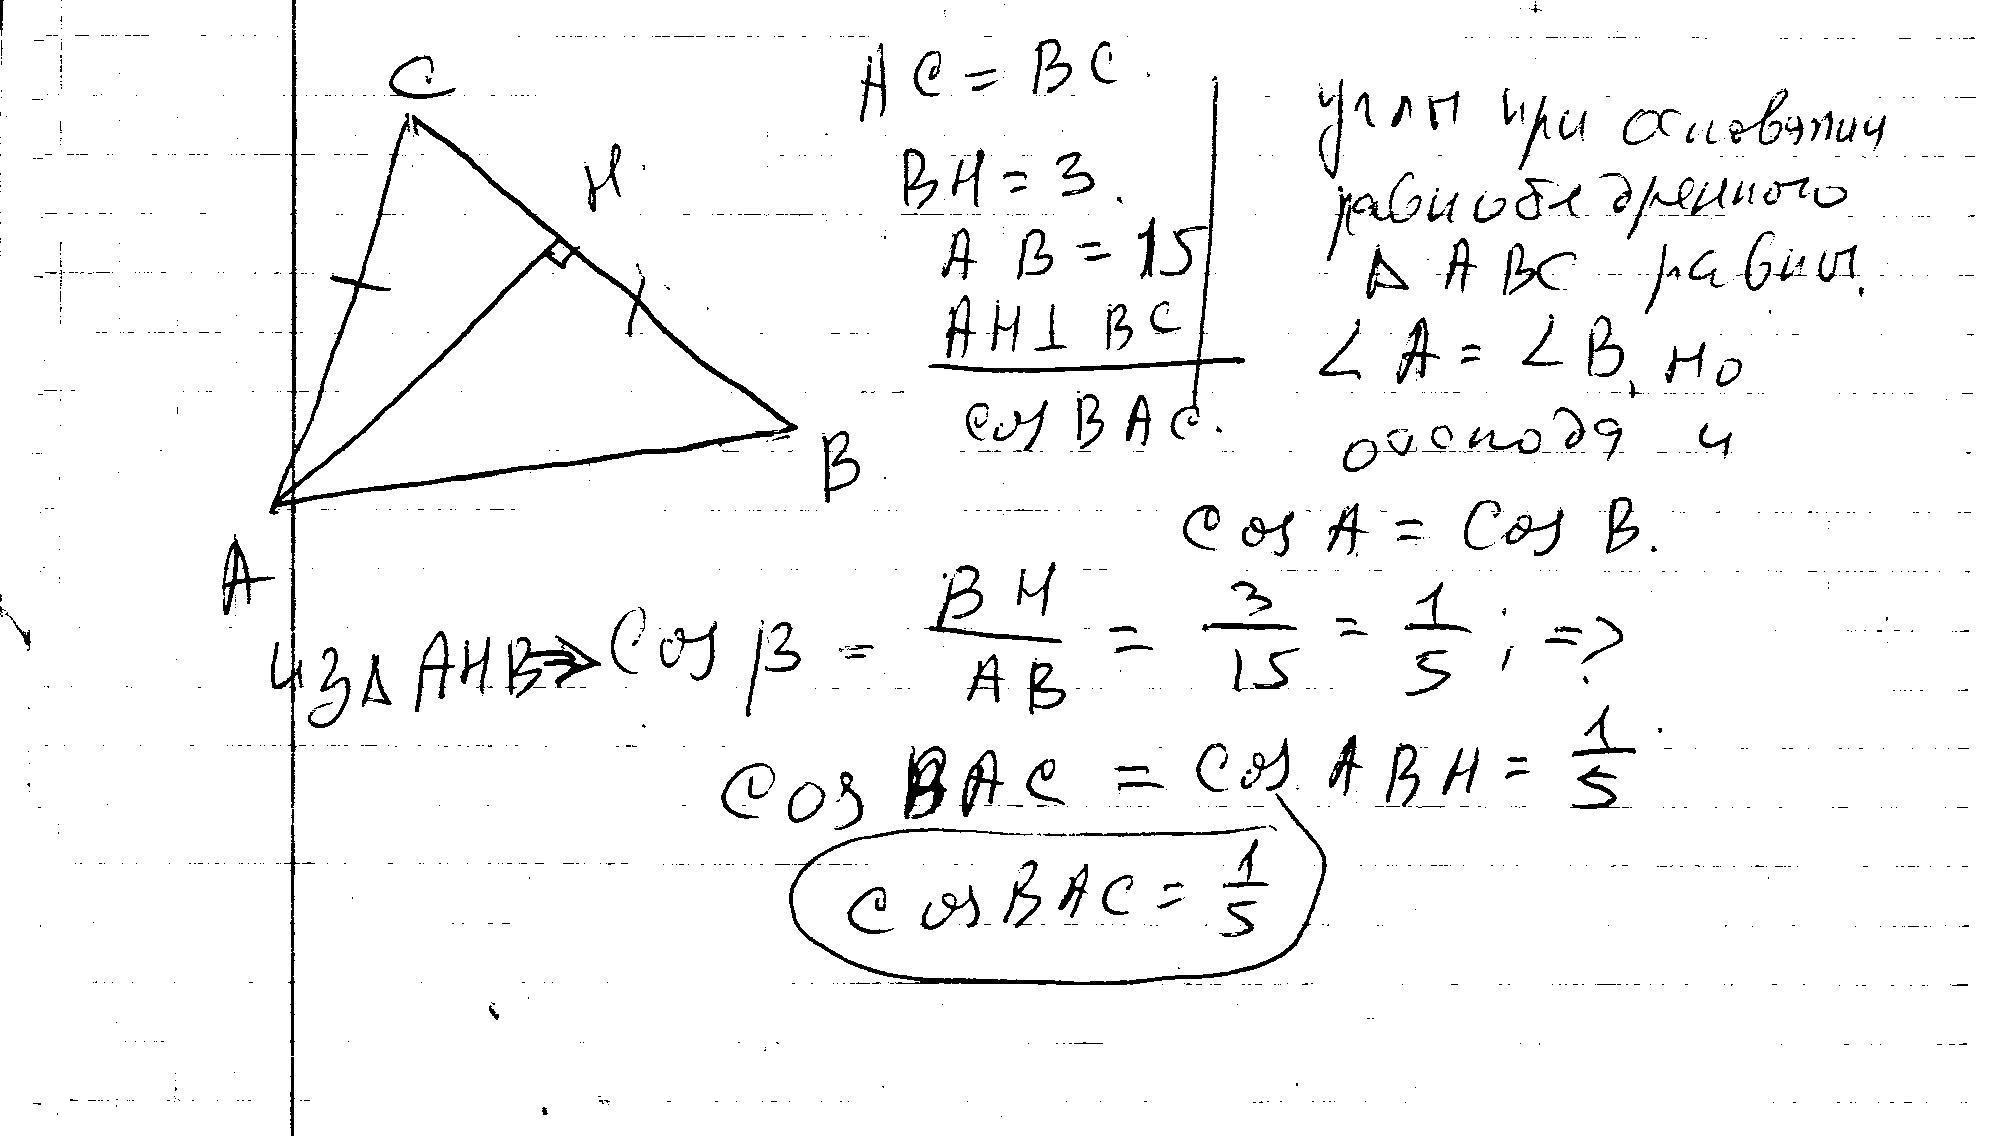 C
H
A
B
AC = BC.
BH = 3.
AB = 15
AH ⊥ BC
cos BAC.
углы при основании
равнобедренного
Δ ABC равны.
∠A = ∠B, но
отсюда и
Cos A = Cos B.
из Δ AHB => Cos β = BH/AB = 3/15 = 1/5; =>
Cos BAC = Cos ABH = 1/5
Cos BAC = 1/5